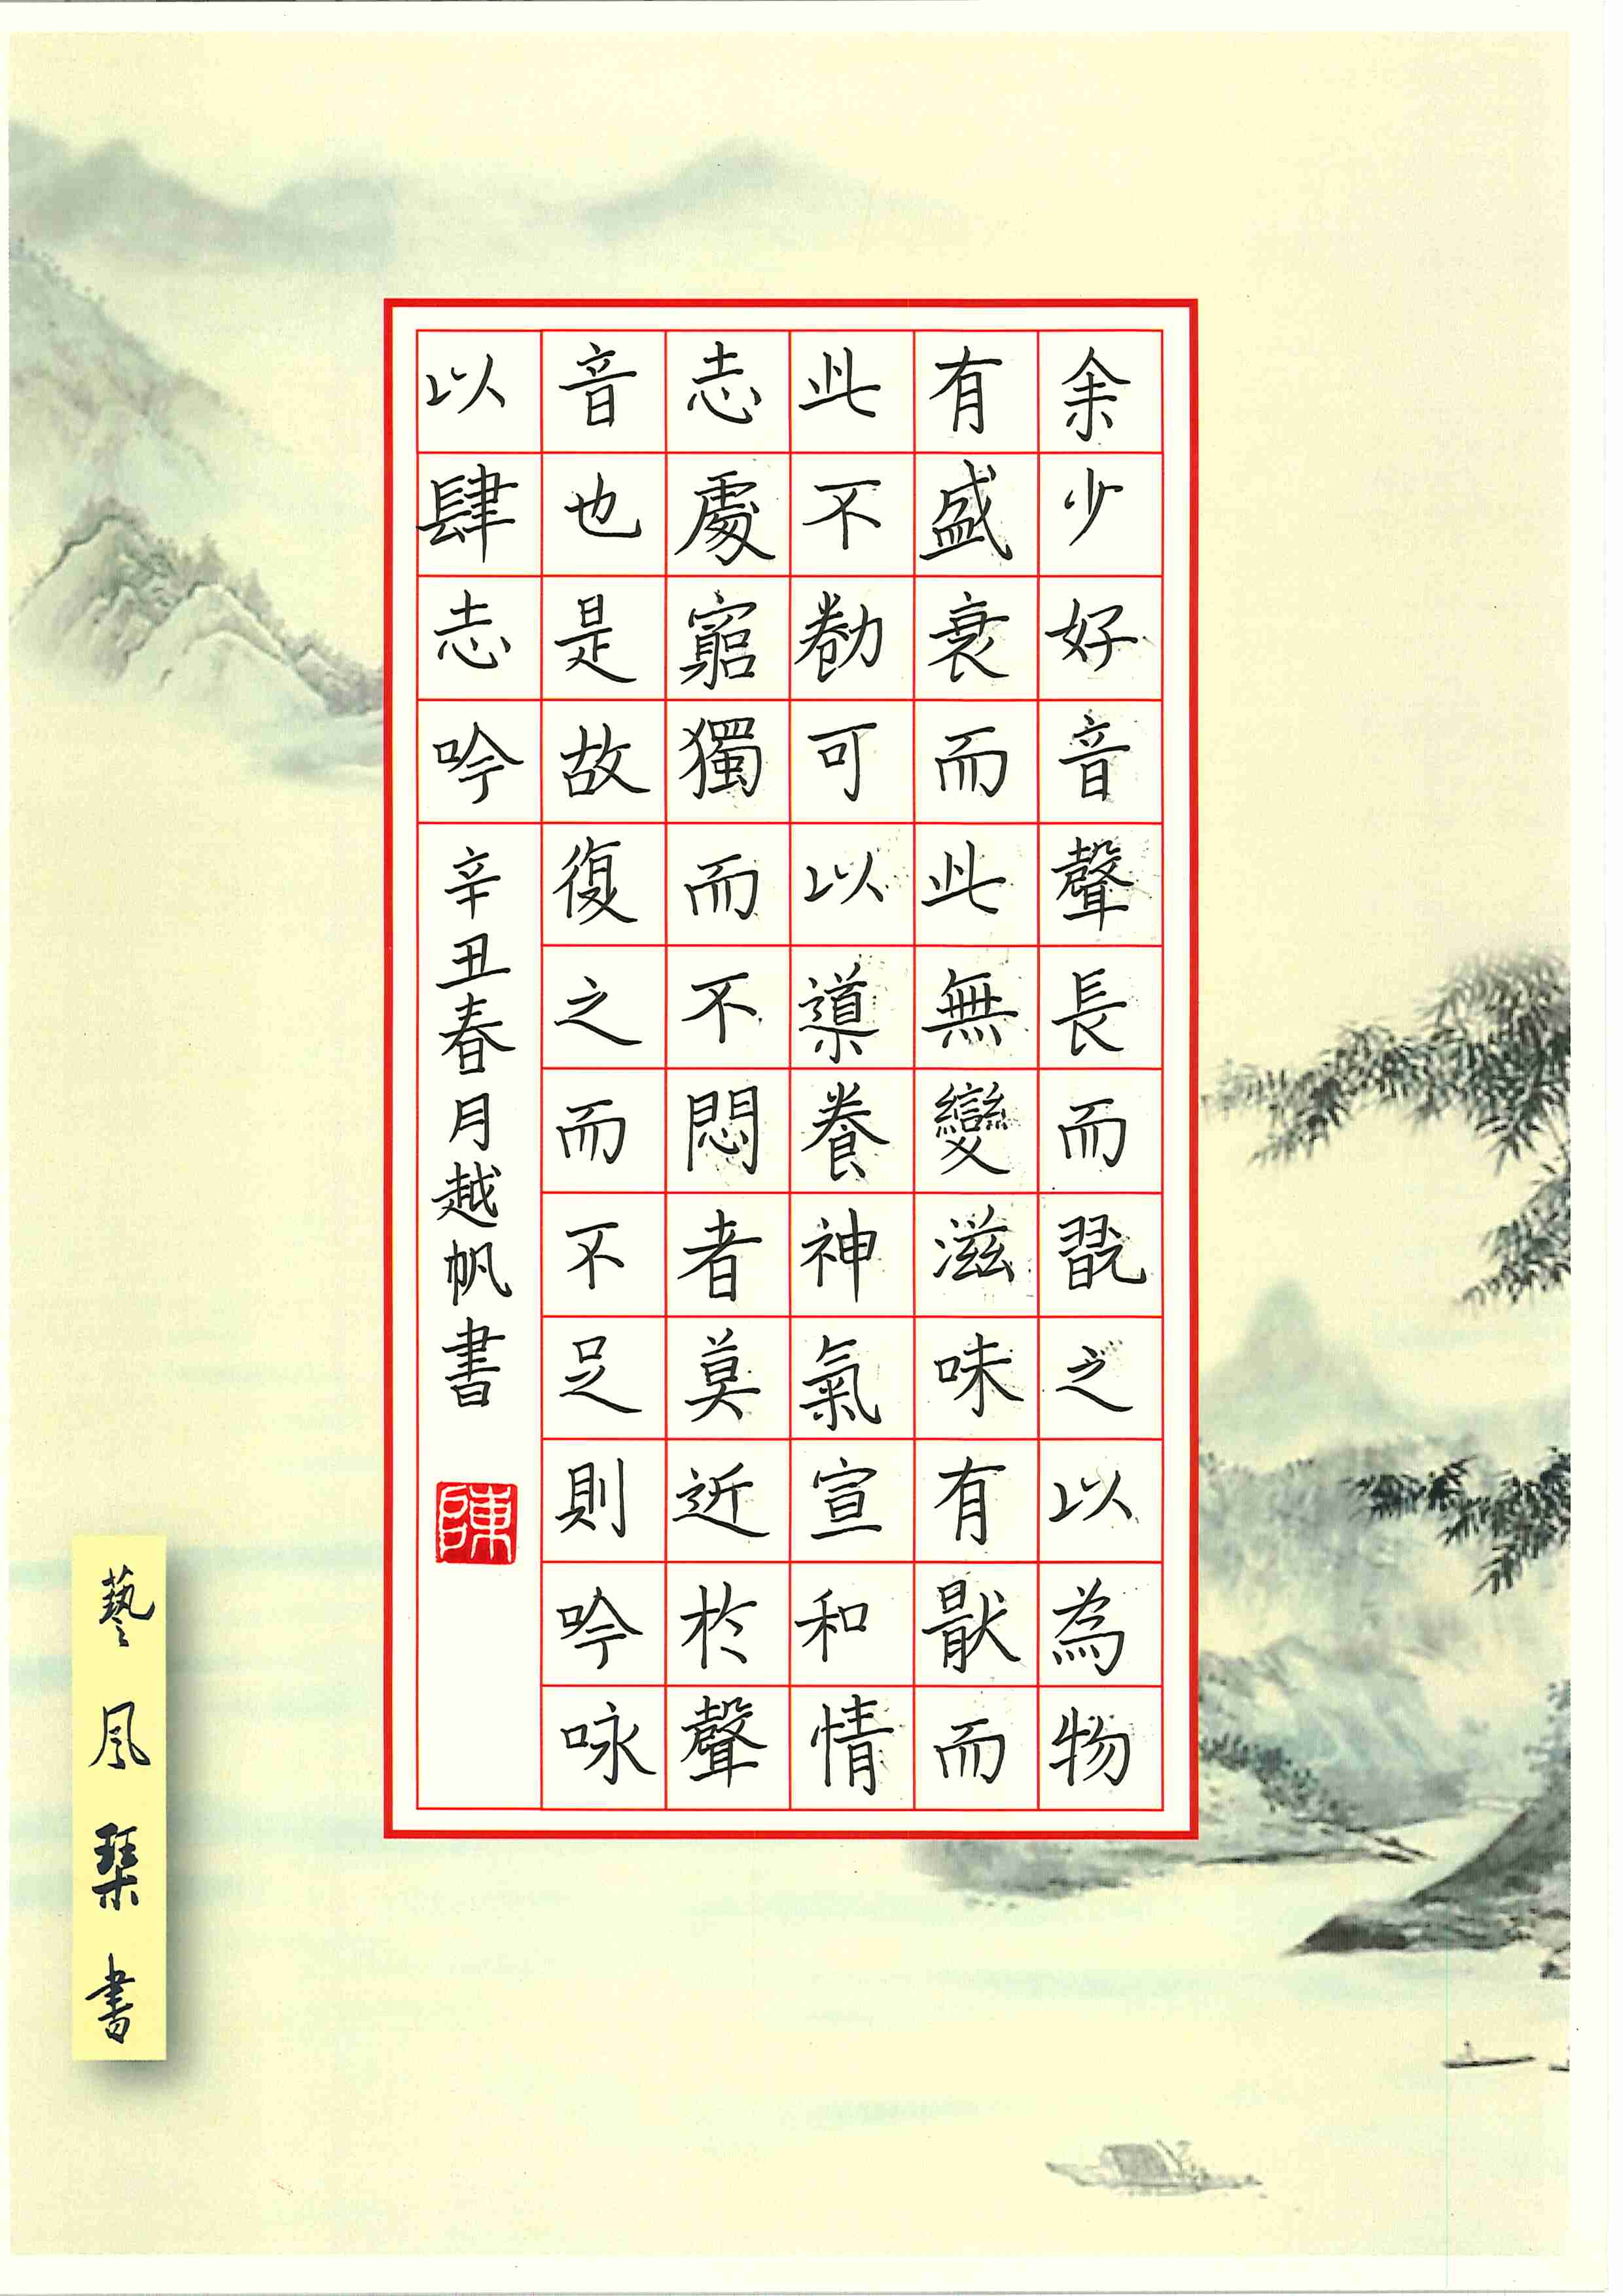 余少好音聲長而翫之以為物
有盛衰而此無變滋味有猒而
此不勌可以導養神氣宣和情
志處窮獨而不悶者莫近於聲
音也是故復之而不足則吟咏
以肆志吟
辛丑春月越帆書
陳
藝風琹書